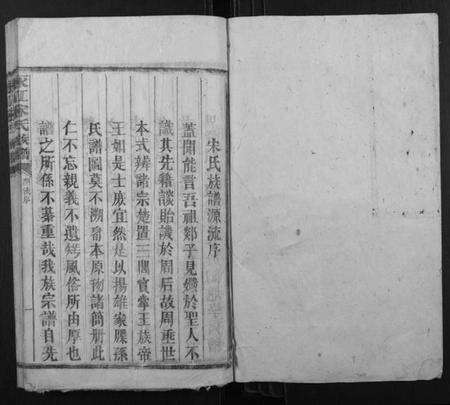 宋氏族譜源流序
蓋聞能言吾祖郯子見禮於聖人不
識其先籍談貽譏於周后故周重世
本式辨諸宗楚置三閭實掌王族帝
王如是士庶宜然是以揚雄家牒孫
氏譜圖莫不溯畨本原物諸簡册此
仁不忘親義不遺㷀風俗所由厚也
譜之所係不綦重哉我族宗譜自先
宋氏族譜